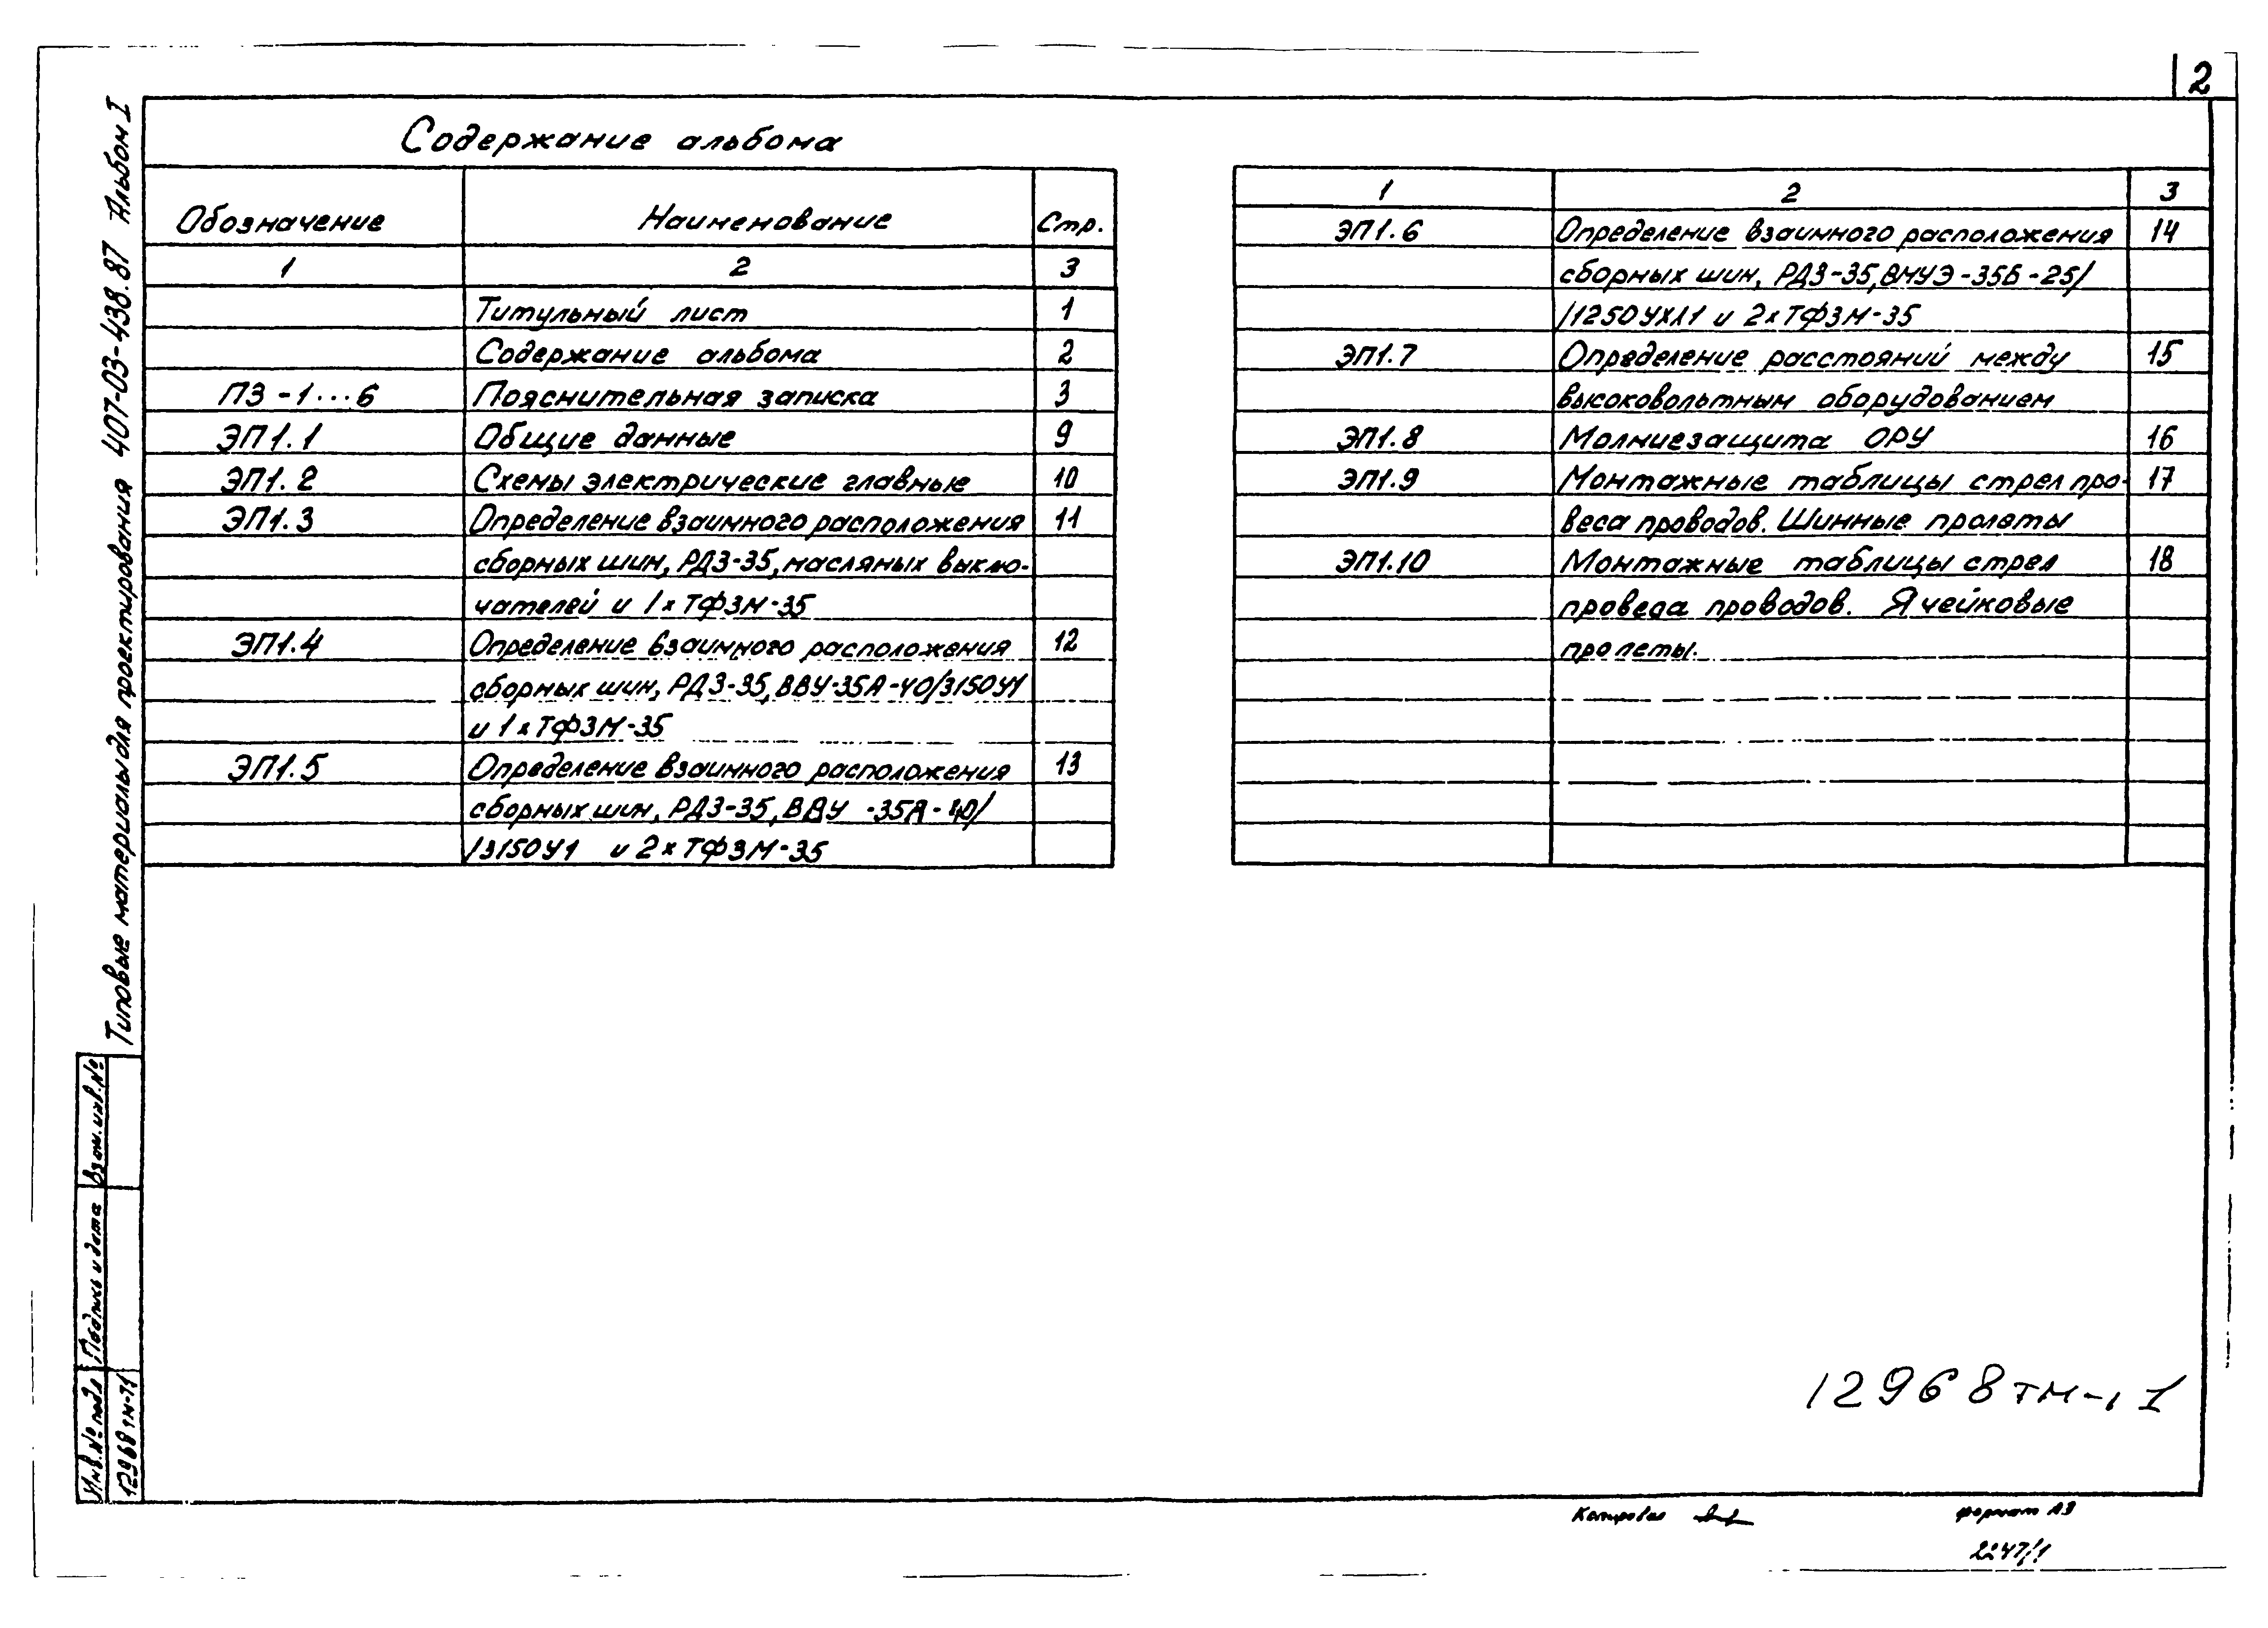 2
Содержание альбома
Обозначение Наименование Стр.
1 2 3
Титульный лист 1
Содержание альбома 2
ПЗ-1...6 Пояснительная записка 3
ЭП1.1 Общие данные 9
ЭП1.2 Схемы электрические главные 10
ЭП1.3 Определение взаимного расположения 11
сборных шин, РДЗ-35, масляных выклю-
чателей и 1хТФЗМ-35
ЭП1.4 Определение взаимного расположения 12
сборных шин, РДЗ-35, ВВУ-35А-40/3150У1
и 1хТФЗМ-35
ЭП1.5 Определение взаимного расположения 13
сборных шин, РДЗ-35, ВВУ -35А-40/
/3150У1 и 2хТФЗМ-35
1 2 3
ЭП1.6 Определение взаимного расположения 14
сборных шин, РДЗ-35, ВМУЭ-35Б-25/
/1250УХЛ1 и 2хТФЗМ-35
ЭП1.7 Определение расстояний между 15
высоковольтным оборудованием
ЭП1.8 Молниезащита ОРУ 16
ЭП1.9 Монтажные таблицы стрел про- 17
веса проводов. Шинные пролеты
ЭП1.10 Монтажные таблицы стрел 18
провеса проводов. Ячейковые
пролеты.
Типовые материалы для проектирования 407-03-438.87 Альбом I
Взам. инв. №
Подпись и дата
Инв. № подл
12968тм-т1
12968тм-т1
Копировал формат А3
2247/1